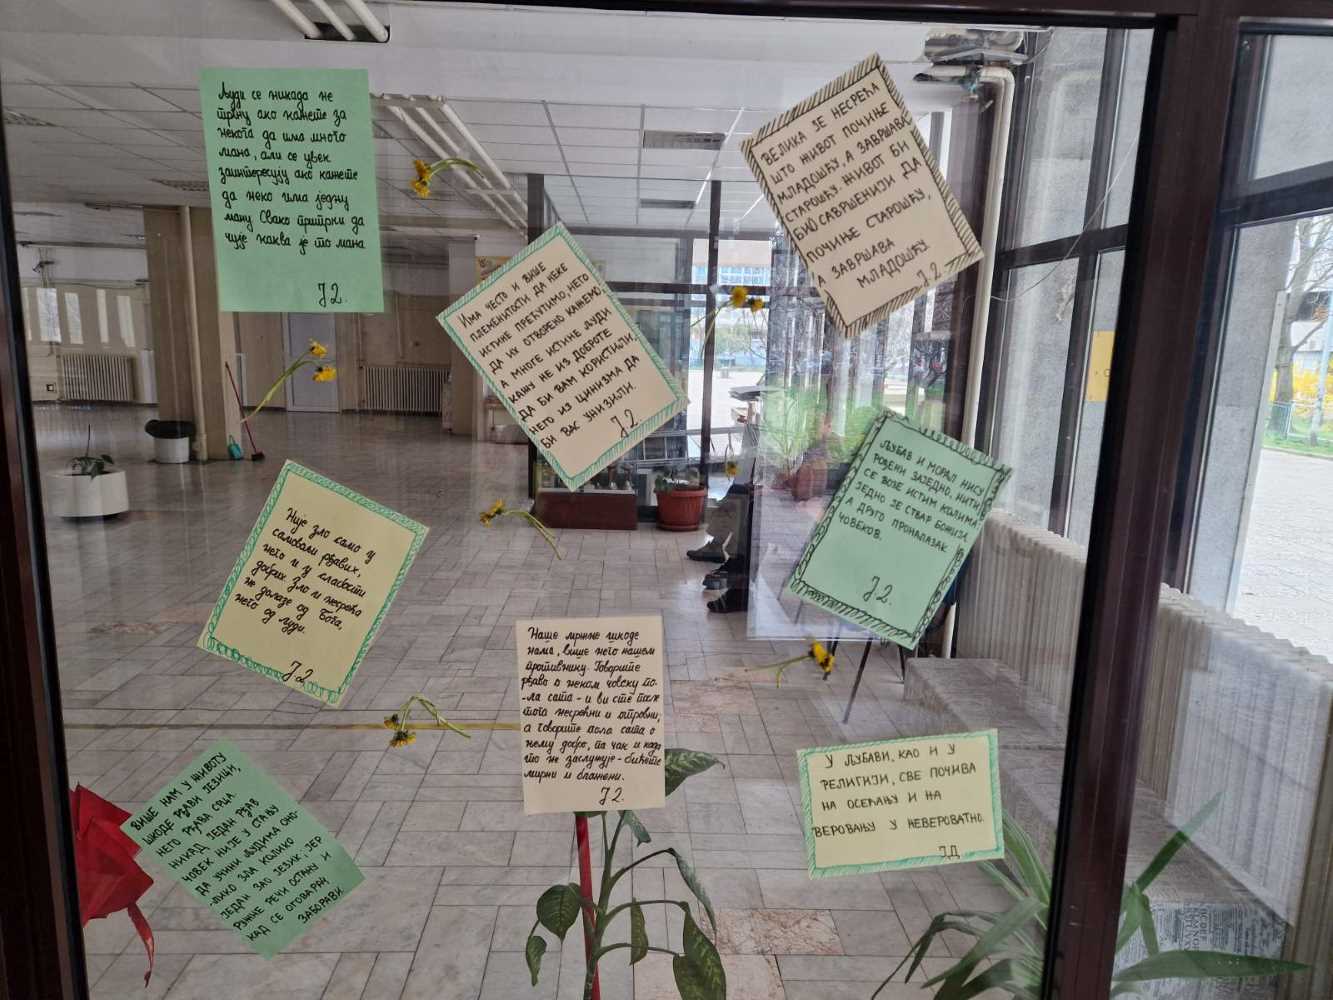 Људи се никада не
тргну ако кажете за
некога да има много
мана, али се увек
заинтересују ако кажете
да неко има једну
ману Свако притрчи да
чује каква је то мана
Ј Д.
ВЕЛИКА ЈЕ НЕСРЕЋА
ШТО ЖИВОТ ПОЧИЊЕ
МЛАДОШЋУ, А ЗАВРШАВА
СТАРОШЋУ. ЖИВОТ БИ
БИО САВРШЕНИЈИ ДА
ПОЧИЊЕ СТАРОШЋУ,
А ЗАВРШАВА
МЛАДОШЋУ.
Ј Д.
ИМА ЧЕСТО И ВИШЕ
ПЛЕМЕНИТОСТИ ДА НЕКЕ
ИСТИНЕ ПРЕЋУТИМО, НЕГО
ДА ИХ ОТВОРЕНО КАЖЕМО
А МНОГЕ ИСТИНЕ ЉУДИ
КАЖУ НЕ ИЗ ДОБРОТЕ
ДА БИ ВАМ КОРИСТИЛИ,
НЕГО ИЗ ЦИНИЗМА ДА
БИ ВАС УНИЗИЛИ.
Ј Д
ЉУБАВ И МОРАЛ НИСУ
РОЂЕНИ ЗАЈЕДНО, НИТИ
СЕ ВОЗЕ ИСТИМ КОЛИМА
ЈЕДНО ЈЕ СТВАР БОЖИЈА
А ДРУГО ПРОНАЛАЗАК
ЧОВЕКОВ.
Ј Д.
Није зло само у
самовољи рђавих,
него и у слабости
добрих Зло и несрећа
не долазе од Бога,
него од људи.
Ј Д
Наше мржње шкоде
нама, више него нашем
противнику. Говорите
рђаво о неком човеку по-
-ла сата - и ви сте после
тога несрећни и отровни,
а говорите пола сата о
њему добро, па чак и када
то не заслужује - бићете
мирни и блажени.
Ј Д.
У ЉУБАВИ, КАО И У
РЕЛИГИЈИ, СВЕ ПОЧИВА
НА ОСЕЋАЊУ И НА
ВЕРОВАЊУ У НЕВЕРОВАТНО.
ЈД
ВИШЕ НАМ У ЖИВОТУ
ШКОДЕ РЂАВИ ЈЕЗИЦИ,
НЕГО РЂАВА СРЦА.
НИКАД ЈЕДАН РЂАВ
ЧОВЕК НИЈЕ У СТАЊУ
ДА УЧИНИ ЉУДИМА ОНО-
-ЛИКО ЗЛА КОЛИКО
ЈЕДАН ЗАО ЈЕЗИК, ЈЕР
РУЖНЕ РЕЧИ ОСТАНУ И
КАД СЕ ОТОВАРАЧ
ЗАБОРАВИ.